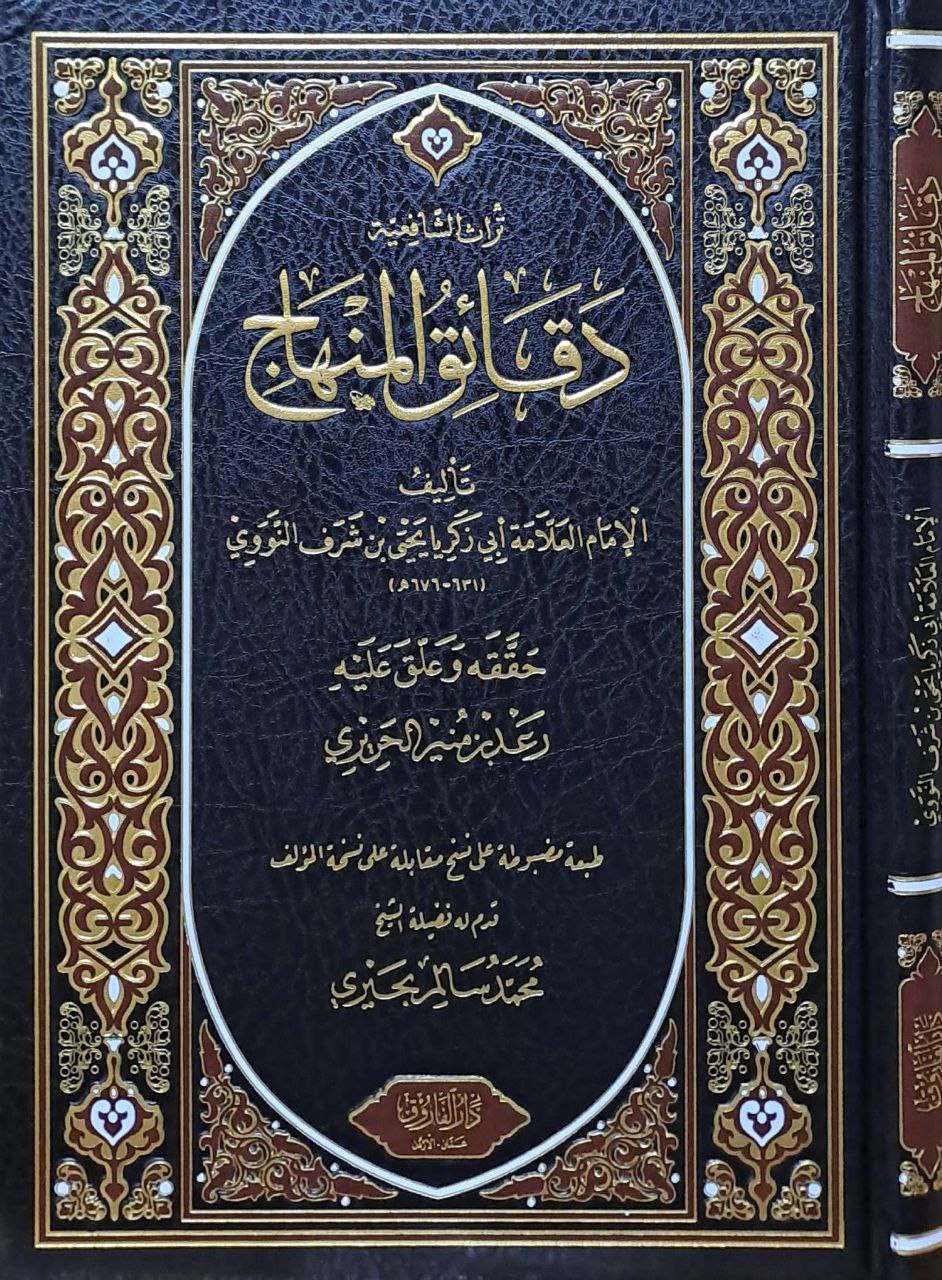 تُرَاث الشَّافِعِيَّة
دَقَائِقُ المِنْهَاجِ
تَأْلِيفُ
الإِمَامِ العَلَّامَة أَبِي زَكَرِيَا يَحْيَى بْن شَرَف النَّوَوِيّ
(٦٣١-٦٧٦هـ)
حَقَّقَه وَعَلَّقَ عَلَيْهِ
رَعْد بْن مُنِيْر الحَرِيْرِي
طبعة مضبوطة على نسخ مقابلة على نسخة المؤلف
قدم له فضيلة الشيخ
مُحَمَّد سَالِم بِحَيْرِي
دَارُ الفَارُوْق
عَمَّان - الأردن
دَقَائِقُ المِنْهَاجِ
الإِمَامِ العَلَّامَة أَبِي زَكَرِيَا يَحْيَى بْن شَرَف النَّوَوِيّ
دَارُ الفَارُوْق